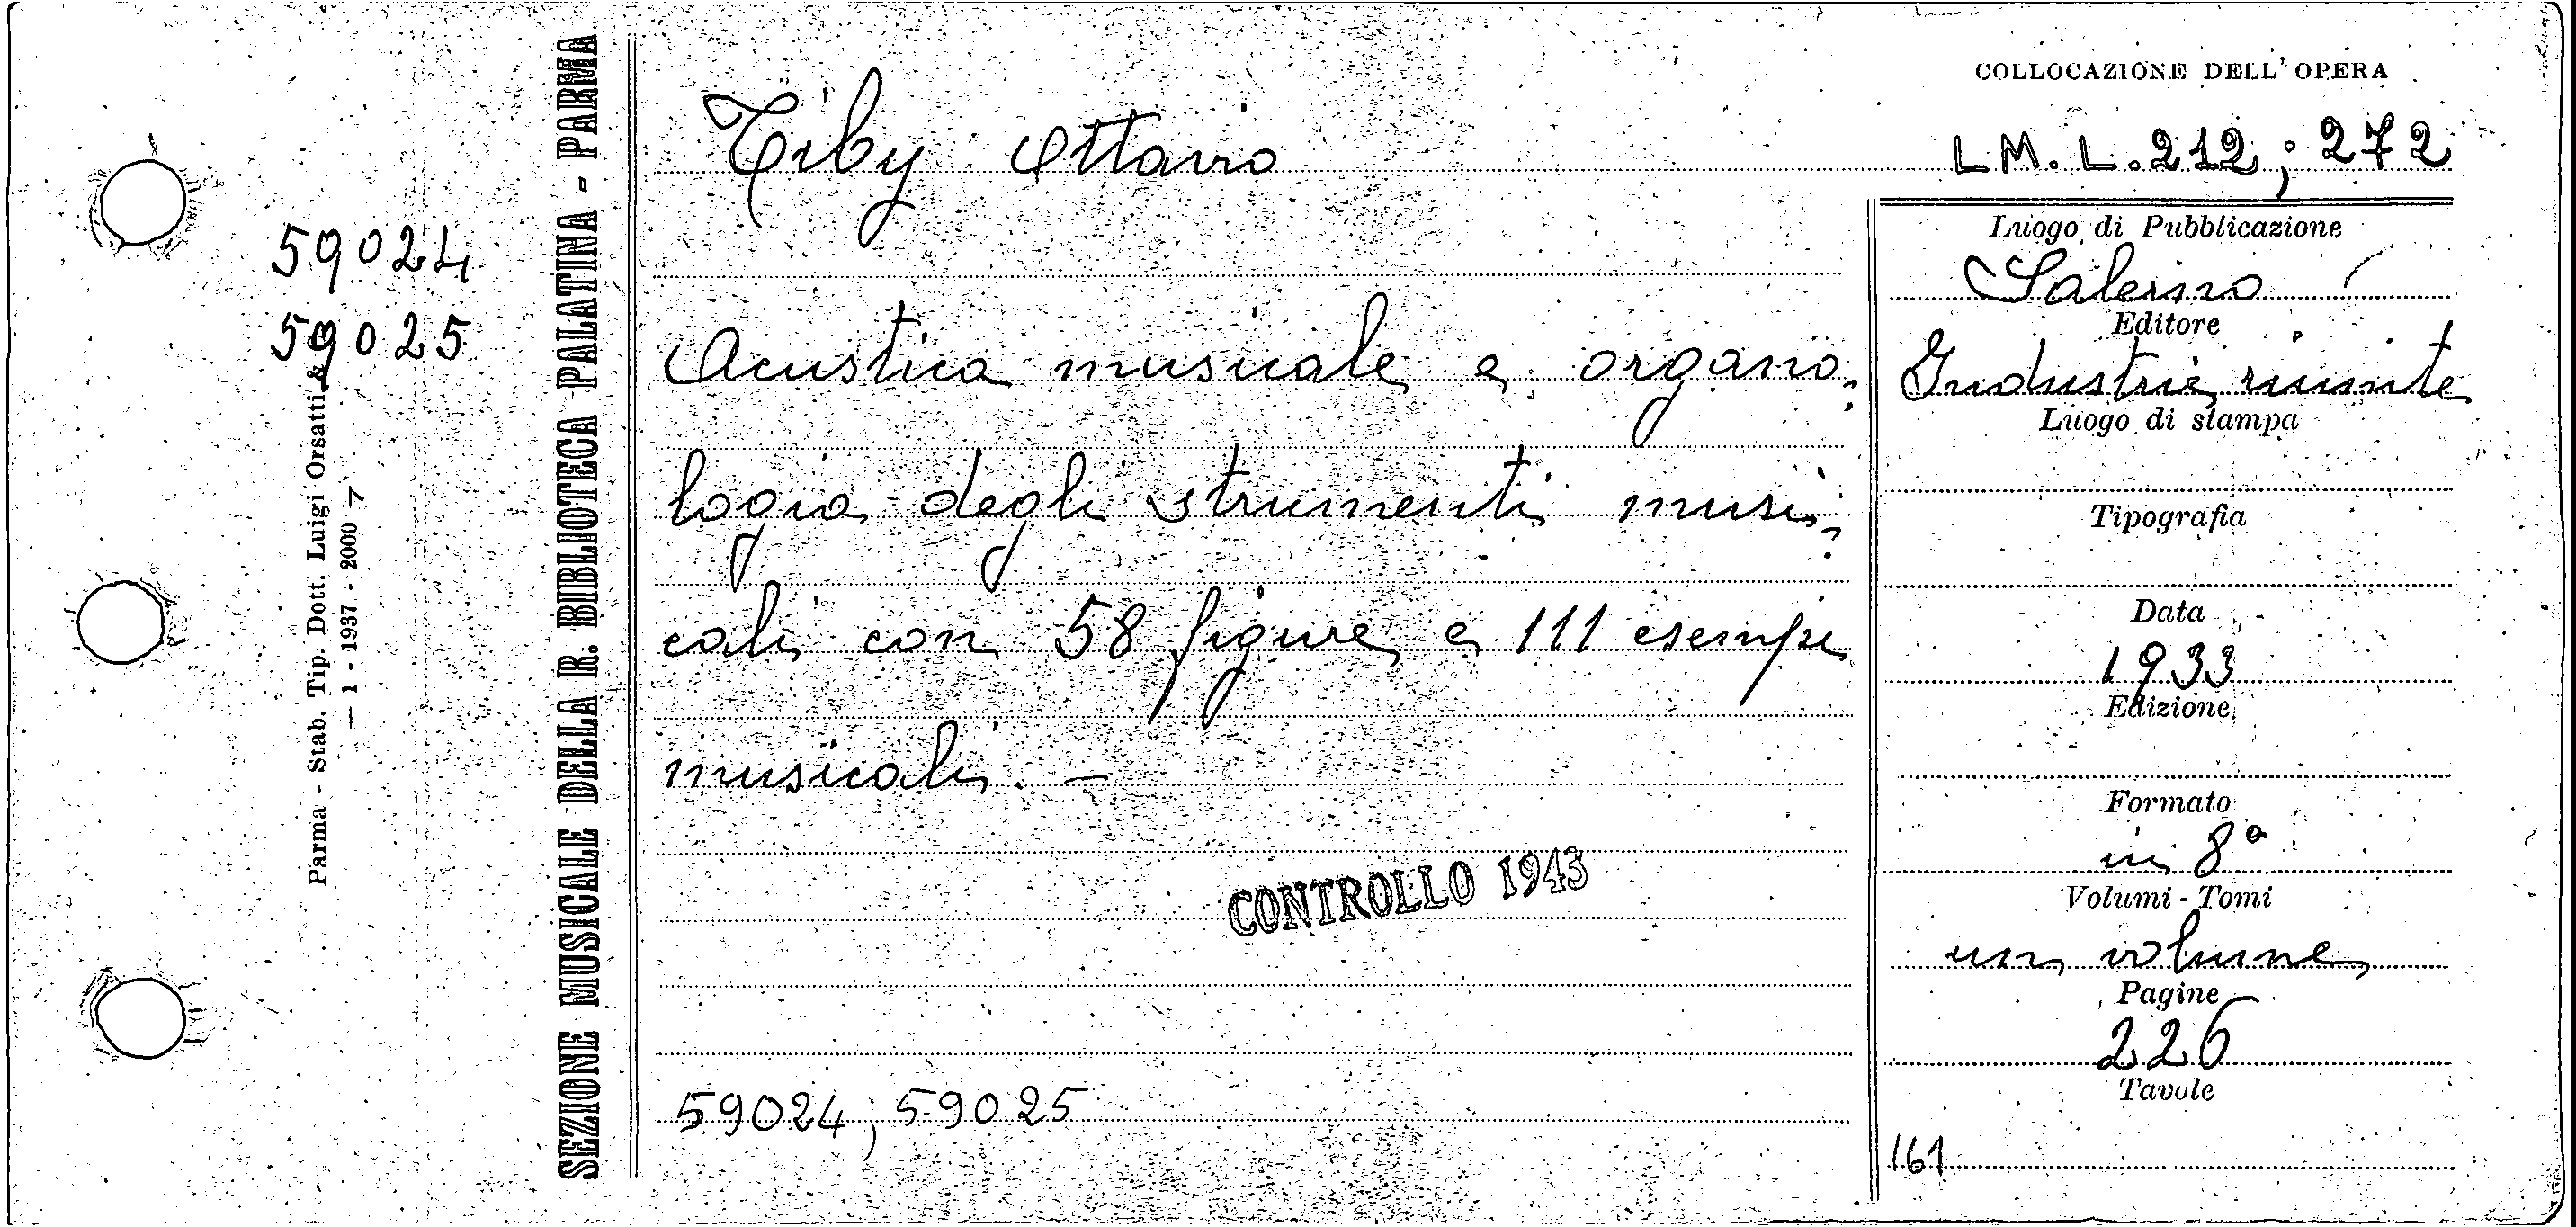 59024
59025
Parma - Stab. Tip. Dott. Luigi Orsatti &
— 1 - 1937 - 2000
SEZIONE MUSICALE DELLA R. BIBLIOTECA PALATINA - PARMA
Tiby Ottavio
Acustica musicale e organo-
logia degli strumenti musi-
cali con 58 figure e 111 esempi
musicali. —
CONTROLLO 1943
59024; 59025
COLLOCAZIONE DELL'OPERA
L M. L. 212; 272
Luogo di Pubblicazione
Salerno
Editore
Industrie riunite
Luogo di stampa
Tipografia
Data
1933
Edizione
Formato
in 8º
Volumi - Tomi
un volume
Pagine
226
Tavole
161